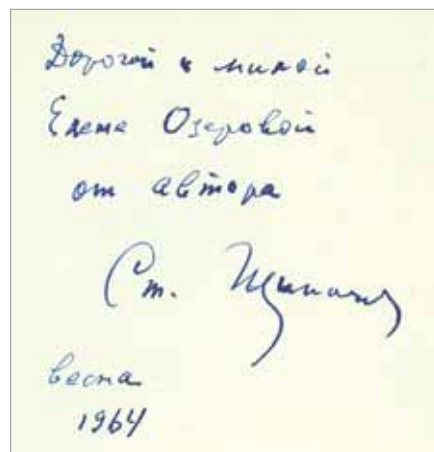 Дорогой и милой
Елене Озеровой
от автора
Ст. Щипачев
весна
1964